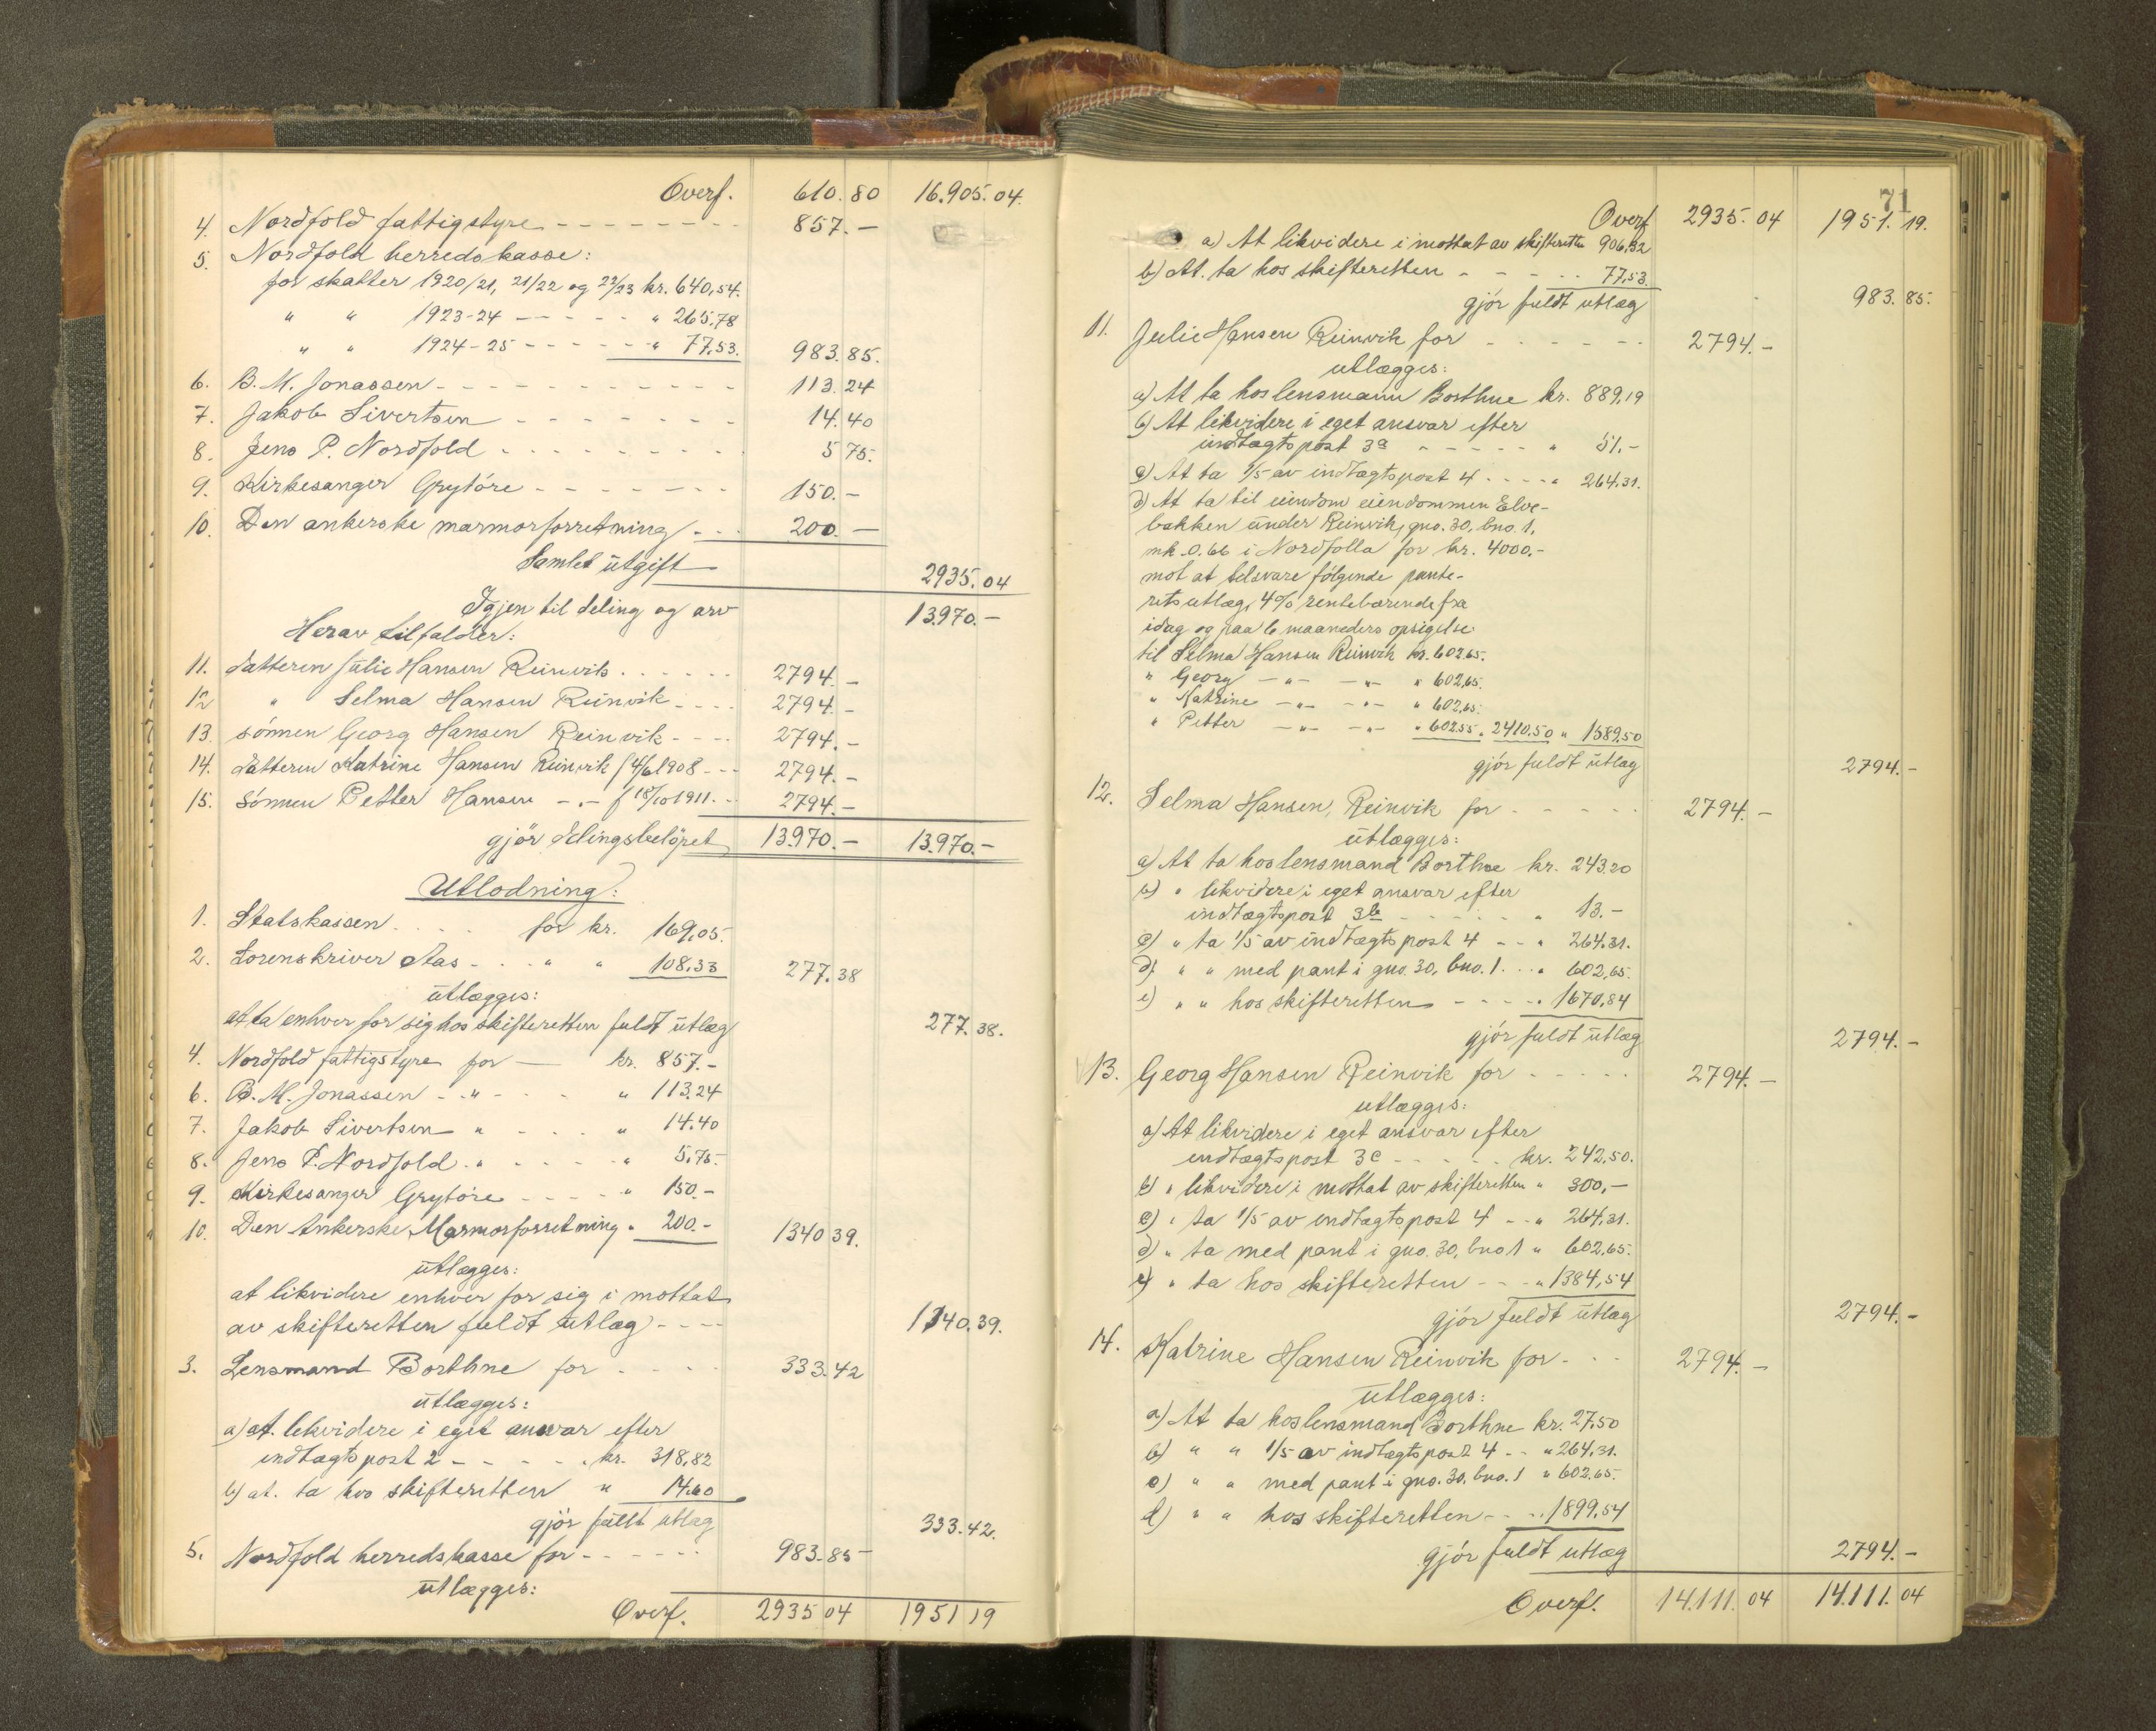 Overf. 610.80 16.905.04.
4. Nordfold fattigstyre - - - - - - - - 857.-
5. Nordfold herredskasse:
for skatter 1920/21, 21/22 og 22/23 kr. 640,54.
" " 1923-24 - - - - - " 265.78
" " 1924-25 - - - - - " 77.53. 983.85.
6. B. M. Jonassen - - - - - - - - - - 113.24
7. Jakob Sivertsen - - - - - - - 14.40
8. Jens P. Nordfold - - - - - - - - 5 75.
9. Kirkesanger Grytöre - - - - - - - 150.-
10. Den ankerske marmorforretning - - - 200.-
Samlet utgift 2935.04
Igjen til deling og arv 13.970.-
Herav tilfalder:
11. datteren Julie Hansen Reinvik - - - - - - 2794.-
12 " Selma Hansen Reinvik - - - - 2794.-
13. sönnen Georg Hansen Reinvik - - - - 2794.-
14. datteren Katrine Hansen Reinvik f 4/6 1908 - - - 2794.-
15. Sönnen Petter Hansen -"- f 18/10 1911. - - 2794.-
gjör delingsbelöpet 13970.- 13.970.-
Utlodning:
1. Statskassen - - - - for kr. 169,05.
2. Sorenskriver Aas - - - " " 108.33 277.38
utlægges:
at ta enhver for sig hos skifteretten fuldt utlæg 277.38.
4. Nordfold fattigstyre for - kr. 857.-
6. B. M. Jonassen - " - - - " 113.24
7. Jakob Sivertsen " - - - - " 14.40
8. Jens P. Nordfold " - - - - - " 5.75.
9. Kirkesanger Grytöre - - - - " 150.-
10. Den Ankerske Marmorforretning " 200.- 1340 39.
utlægges:
at likvidere enhver for sig i mottat
av skifteretten fuldt utlæg - - - - 1340.39.
3. Lensmand Borthne for - - - - 333.42
utlægges:
a) at. likvidere i eget ansvar efter
indtægtspost 2 - - - - - - kr. 318,82
b) at. ta hos skifteretten " 14.60
gjör fuldt utlæg 333.42.
5. Nordfold herredskasse for - - - - - - 983.85
utlægges:
Overf. 2935 04 1951 19
71
Overf 2935.04 1951.19.
a) At likvidere i mottat av skifteretten 906,32
b) At. ta hos skifteretten - - - - - 77.53.
gjör fuldt utlæg 983.85.
11. Julie Hansen Reinvik for - - - - - - 2794.-
utlægges:
a) At ta hos lensmann Borthne kr. 889,19
b) At likvidere i eget ansvar efter
indtægtspost 3a - - - - - " 51.-
c) At ta 1/5 av indtægtspost 4 - - - - " 264.31.
d) At ta til eiendom eiendommen Elve-
bakken under Reinvik, gno. 30, bno. 1,
mk. 0.66 i Nordfolla for kr. 4000.-
mot at tilsvare følgende pante-
rets utlæg, 4% rentebærende fra
idag og paa 6 maaneders opsigelse
til Selma Hansen Reinvik kr. 602,65.
" Georg -"- -"- " 602,65.
" Katrine -"- -"- " 602,65.
" Petter -"- -"- " 602.55 " 2410.50 " 1589.50
gjör fuldt utlæg 2794.-
12. Selma Hansen, Reinvik for - - - - - 2794.-
utlægges:
a) At ta hos lensmand Borthne kr. 243.20
b) " likvidere i eget ansvar efter
indtægtspost 3b - - - - - " 13.-
c) " ta 1/5 av indtægtspost 4 - - " 264.31.
d) " " med pant i gno. 30, bno. 1. - - " 602,65.
e) " " hos skifteretten - - - - " 1670,84
gjör fuldt utlæg 2794.-
13. Georg Hansen Reinvik for - - - - - 2794.-
utlægges:
a) At likvidere i eget ansvar efter
indtægtspost 3c - - - - - kr. 242,50.
b) " likvidere i mottat av skifteretten " 300,-
c) " ta 1/5 av indtægtspost 4 - - " 264.31.
d) " ta med pant i gno. 30, bno 1 " 602,65.
e) " ta hos skifteretten - - - " 1384,54
gjör fuldt utlæg 2794.-
14. Katrine Hansen Reinvik for - - - 2794.-
utlægges:
a) At ta hos lensmand Borthne kr. 27,50
b) " " 1/5 av indtægtspost 4 - - " 264,31.
c) " " med pant i gno. 30. bno. 1 " 602.65.
d) " " hos skifteretten - - - " 1899,54
gjör fuldt utlæg 2794.-
Overf. 14.111.04 14.111.04